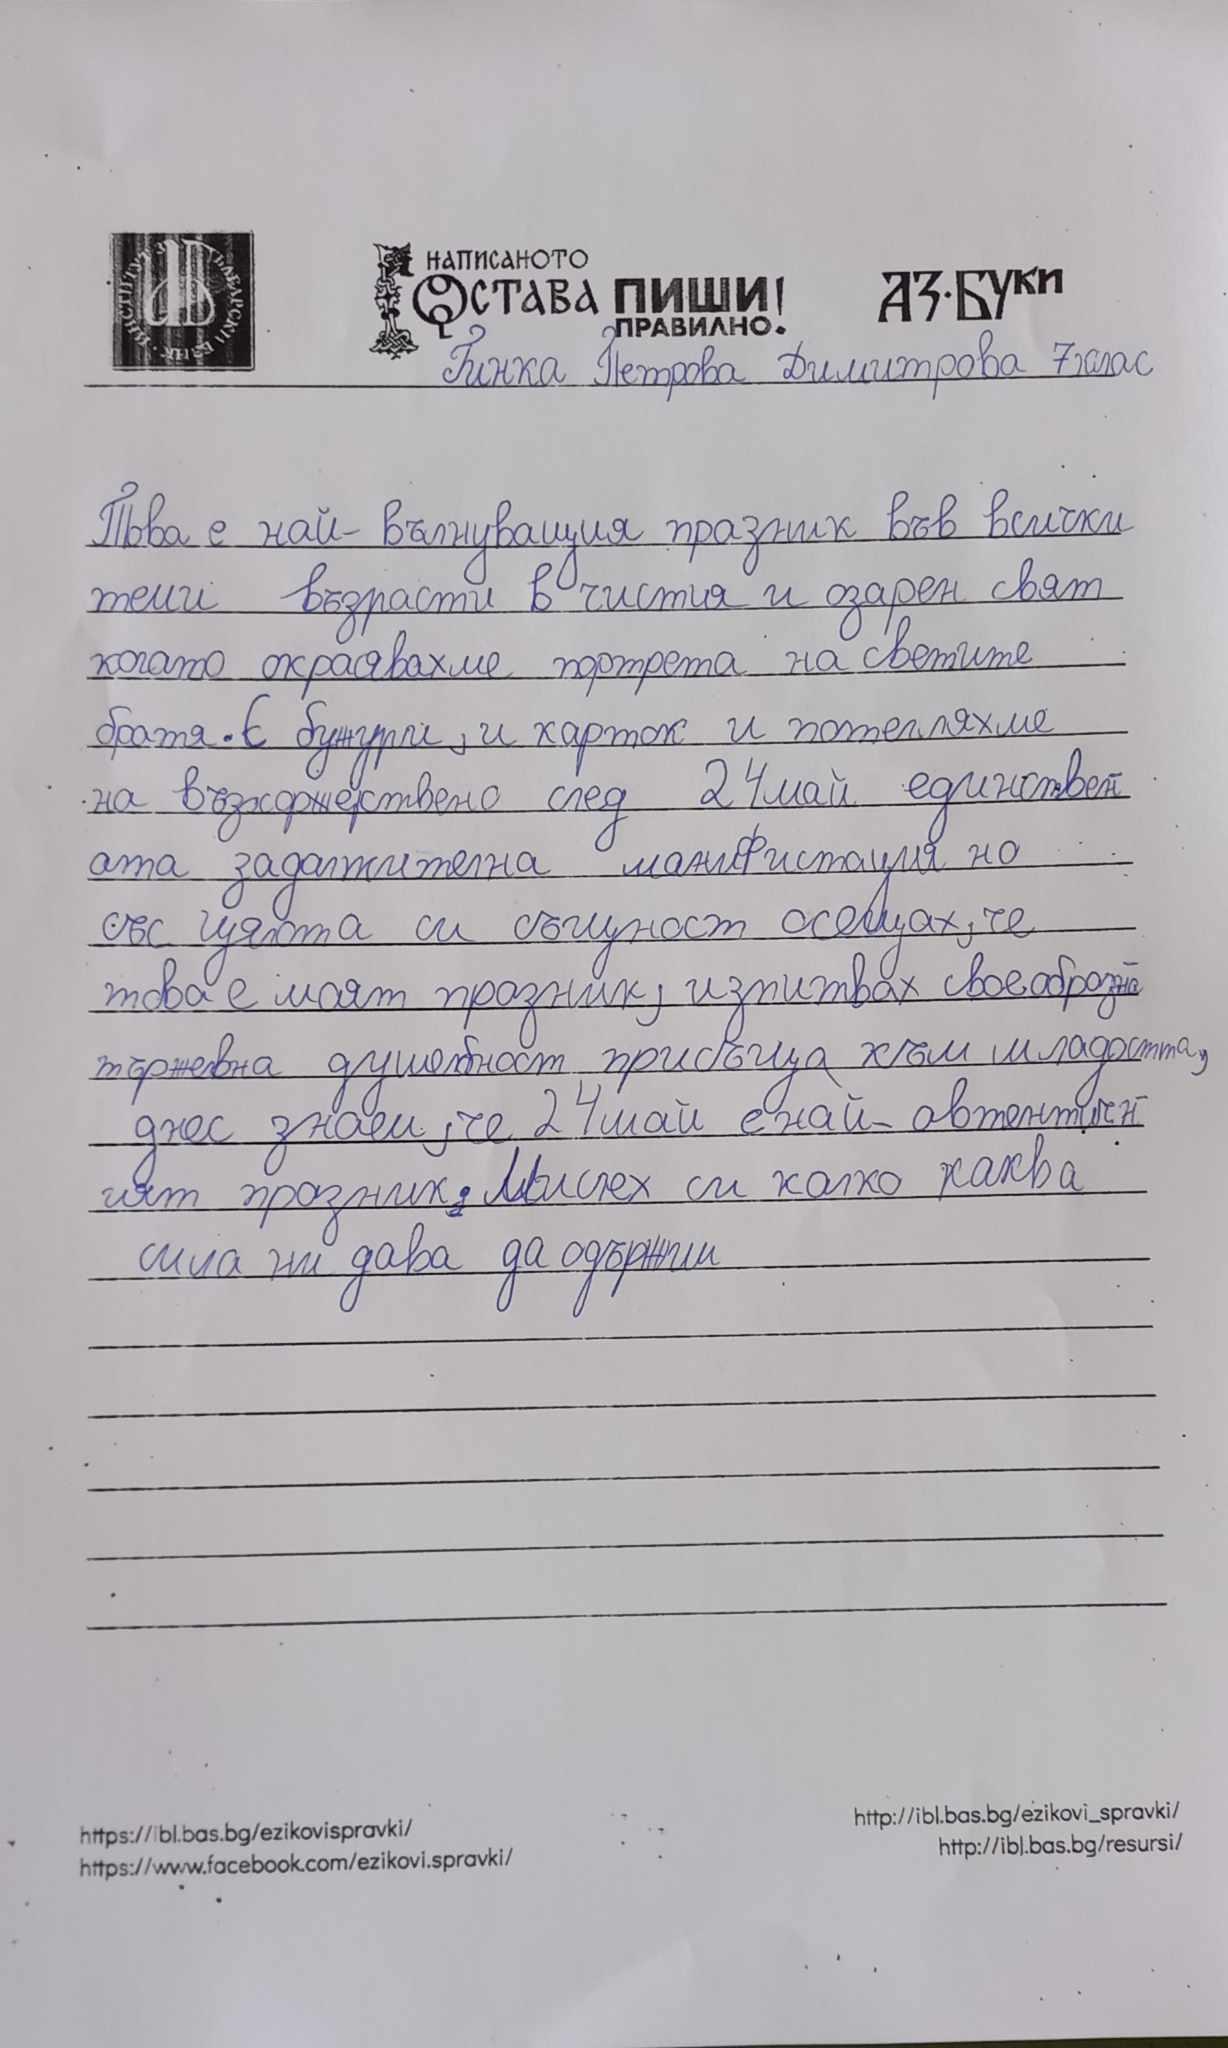 ИНСТИТУТ ЗА БЪЛГАРСКИ ЕЗИК
НАПИСАНОТО
ОСТАВА ПИШИ!
ПРАВИЛНО.
АЗ·БУКИ
Гинка Петрова Димитрова 7клас
Това е най- вълнуващия празник във всички
теми възрасти в чистия и озарен свят
когато окрасявахме портрета на светите
братя. С бужури, и карток и потегляхме
на след 24май единствен
ата задалжителна манифистация но
със цялота си същност осещах, че
това е моят празник, изпитвах своеобразна
тържевна душевност присъща към младостта,
днес знаем, че 24май е най- автентичн
ият празник. Мислех си колко каква
сила ни дава да одържим
https://ibl.bas.bg/ezikovispravki/
https://www.facebook.com/ezikovi.spravki/
http://ibl.bas.bg/ezikovi_spravki/
http://ibl.bas.bg/resursi/